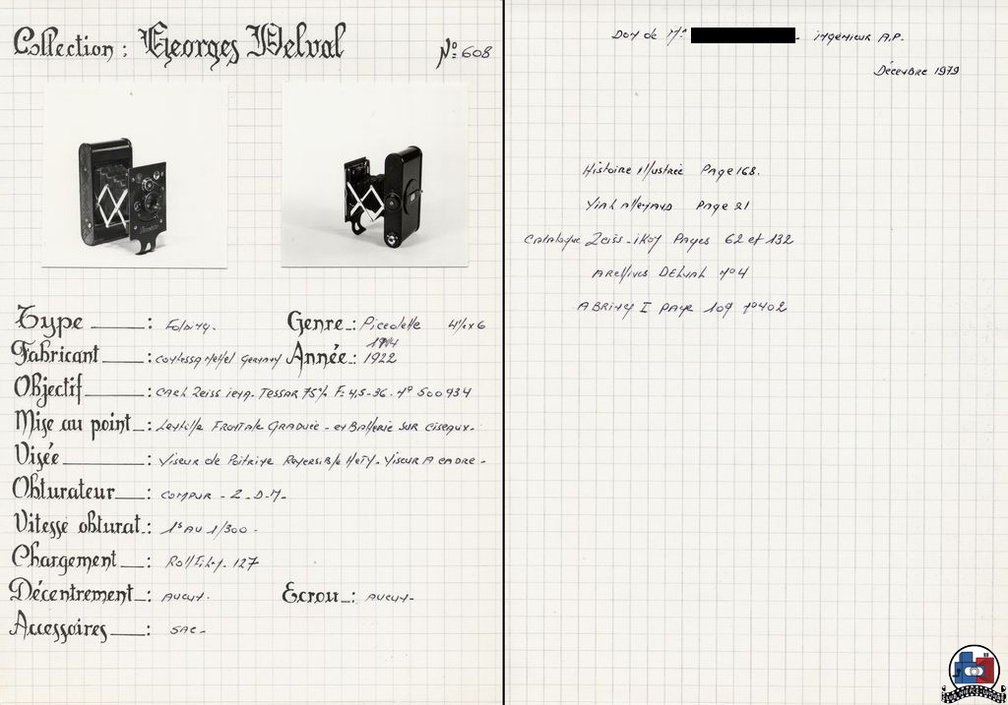 Collection : Georges Delval
Nº 608
Type : Folding.
Genre : Piccolette 4½x6
Fabricant : Contessa Nettel Germany
1914
Année : 1922
Objectif : Carl Zeiss iena. TESSAR 75% F: 4,5-36. Nº 500934
Mise au point : Lentille FRONTALE GRADUÉE - et Batterie SUR ciseaux.
Visée : Viseur de Poitrine Reversible Viseur A cadre -
Obturateur : COMPUR - Z. D. M.
Vitesse obturat. : 1s AU 1/300 -
Chargement : RollFilm. 127
Décentrement : AUCUN.
Ecrou : AUCUN.
Accessoires : SAC -
DON de Mr ingénieur A.P.
Décembre 1979
Histoire illustrée Page 168.
Vial Page 21
Catalogue Zeiss-iKon Pages 62 et 132
ARCHIVES DELVAL Nº 4
ABRING I PAGE 109 Nº 402